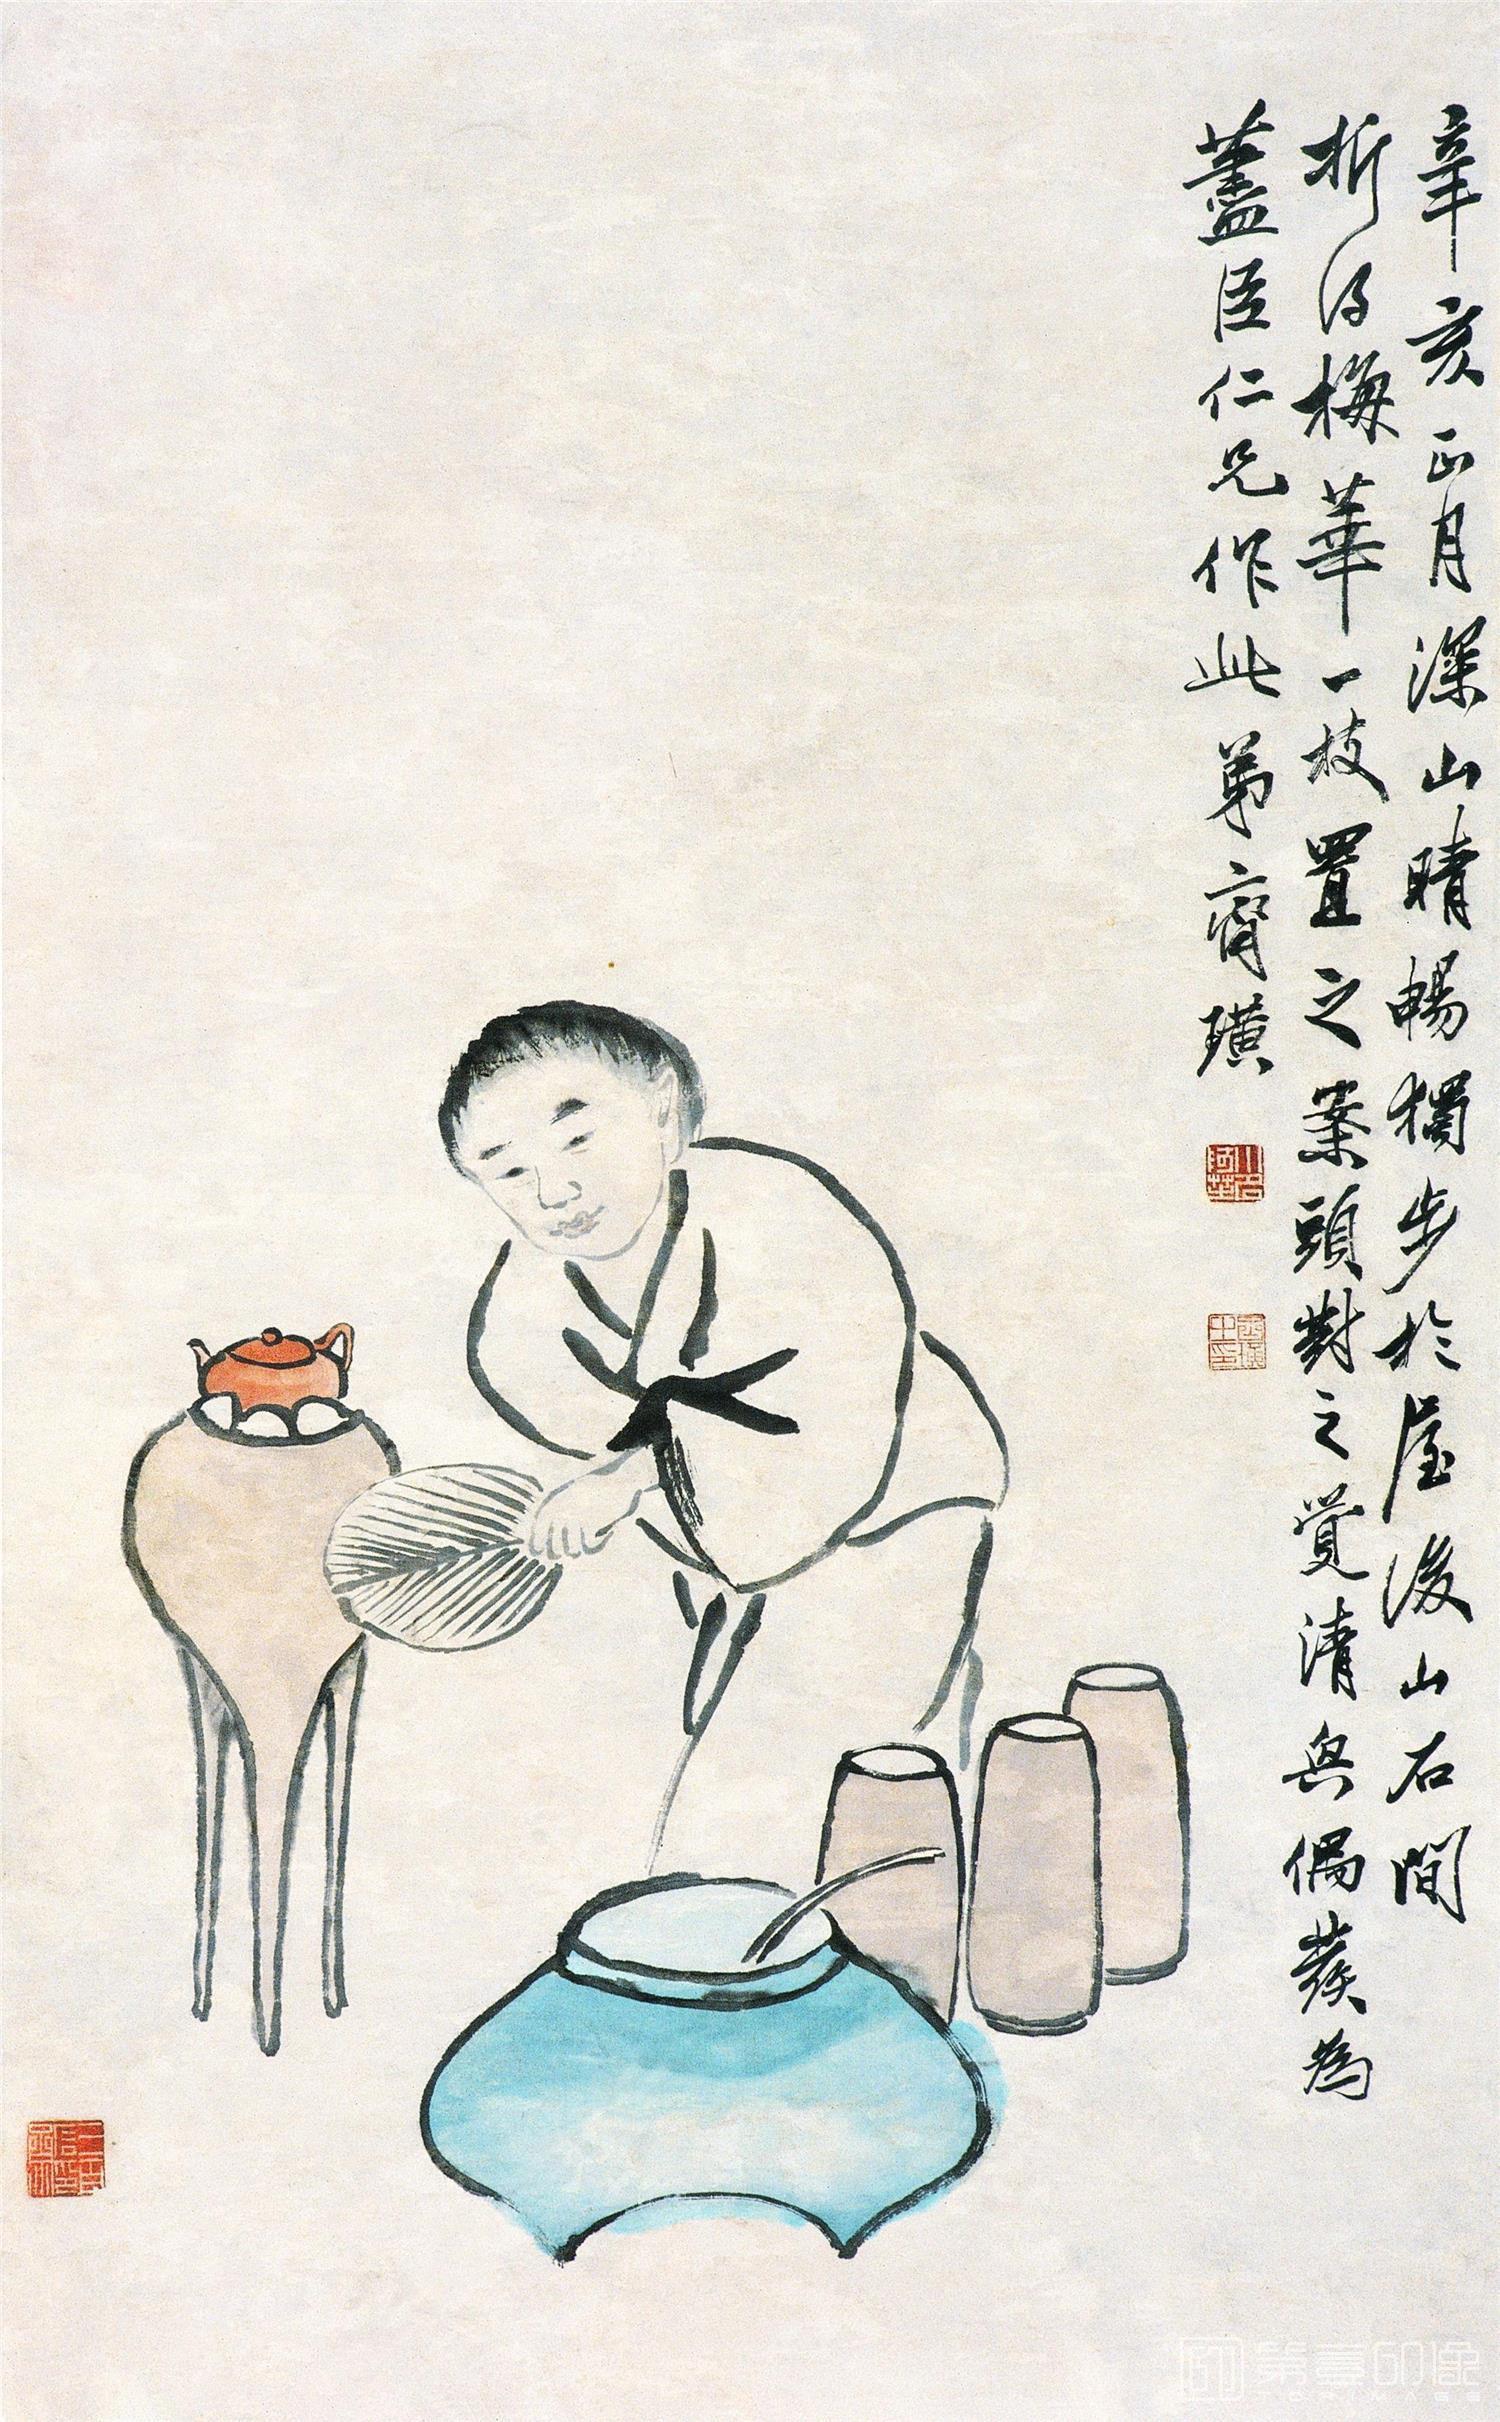 辛亥正月深山晴暢獨步於屋後山石間
折得梅華一枝置之案頭對之覺清興偶發為
藎臣仁兄作此弟齊璜
第壹印像